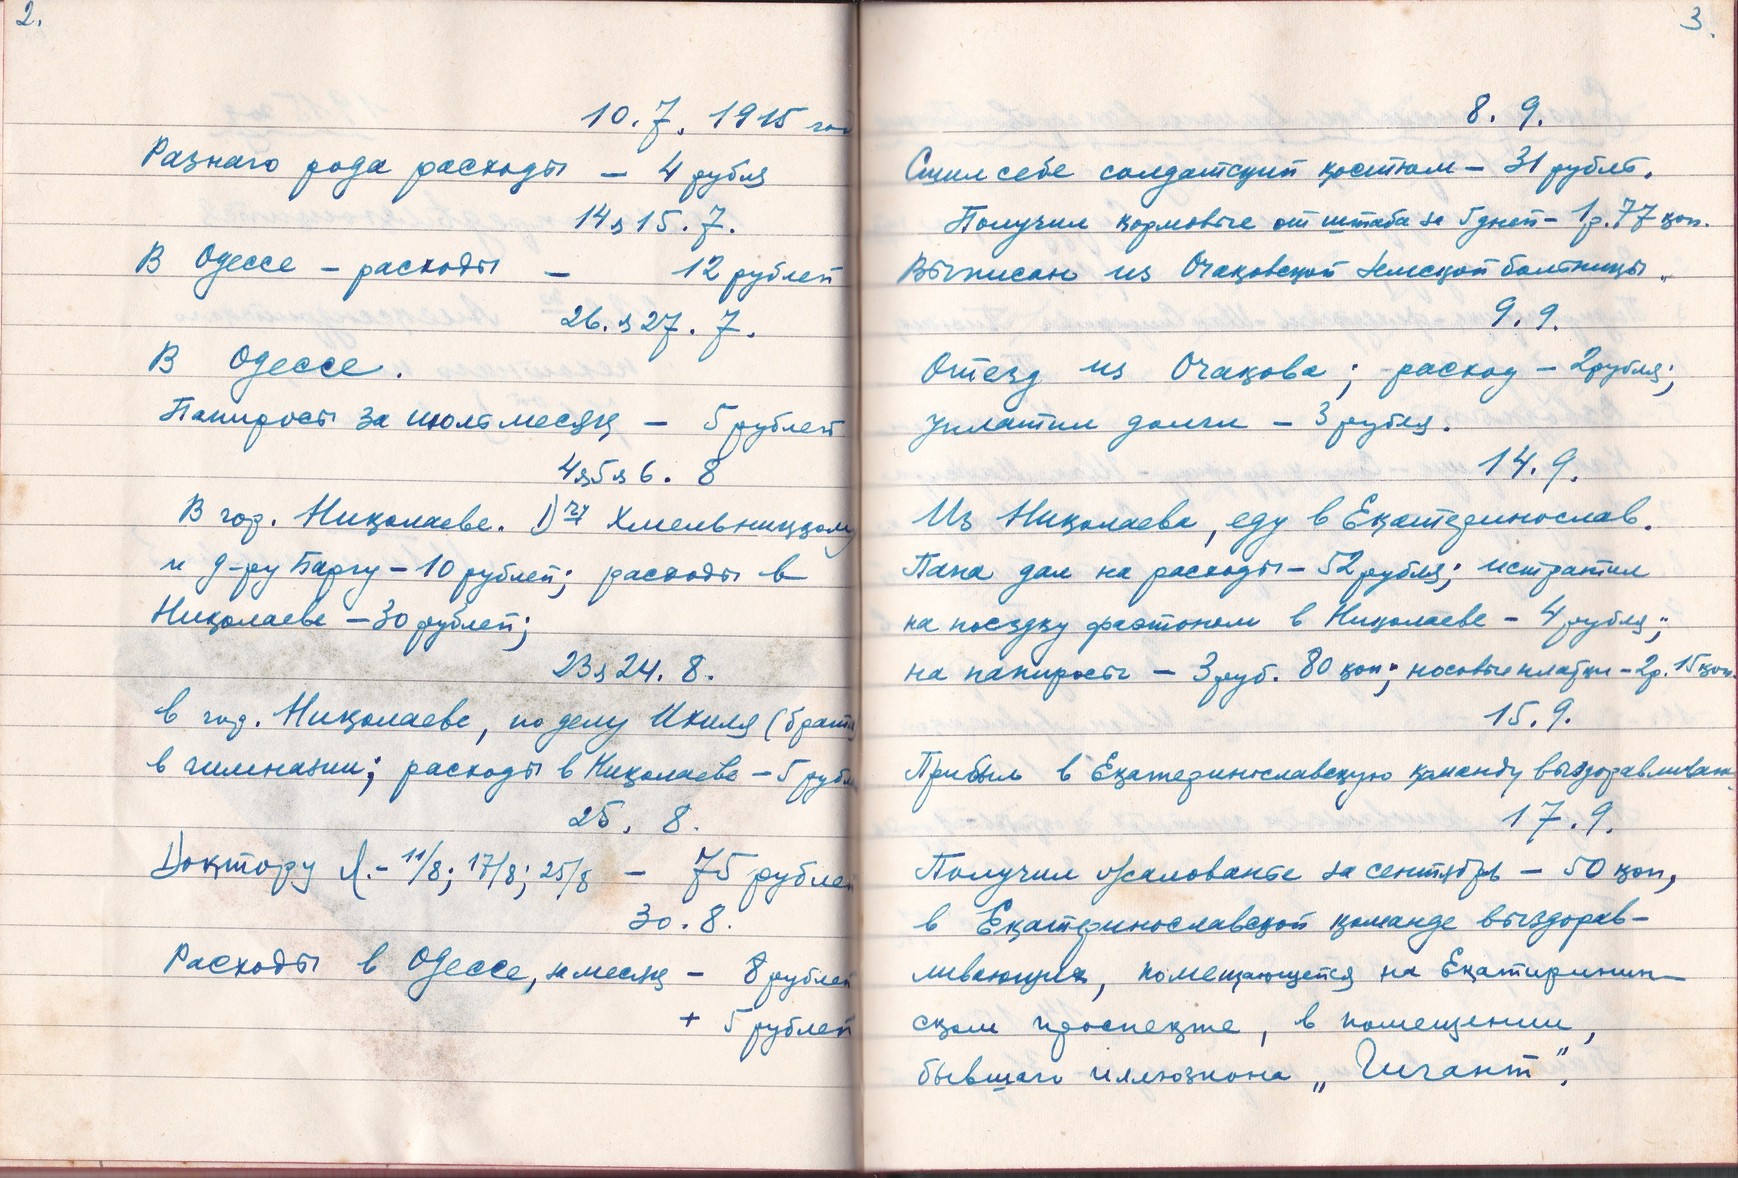 2.
10.7. 1915 год
Разнаго рода расходы – 4 рубля
14 и 15.7.
В Одессе – расходы – 12 рублей
26. и 27. 7.
В Одессе.
Папиросы за июль месяц – 5 рублей
4 и 5 и 6. 8
В гор. Николаеве. Хмельницкому
и д-ру Баргу – 10 рублей; расходы в
Николаеве – 30 рублей;
23 и 24. 8.
в гор. Николаеве, по делу Ихиля (брата
в гимназии; расходы в Николаеве – 5 рубл
25. 8.
Доктору Л. – 11/8; 17/8; 25/8 – 75 рублей
30. 8.
Расходы в Одессе, за месяц – 8 рублей
+ 5 рублей
3.
8. 9.
Сшил себе солдатский костюм – 31 рубль.
Получил кормовые от штаба за 5 дней – 1 р. 77 коп.
Выписан из Очаковской земской больницы.
9. 9.
Отезд из Очакова; расход – 2 рубля;
уплатил долги – 3 рубля.
14. 9.
Из Николаева, еду в Екатеринослав.
Папа дал на расходы – 52 рубля; истратил
на поездку фаэтоном в Николаеве – 4 рубля;
на папиросы – 3 руб. 80 коп; носовые платки – 2 р. 15 коп.
15. 9.
Прибыл в Екатеринославскую команду выздоравливающ.
17. 9.
Получил жалованье за сентябрь – 50 коп,
в Екатеринославской команде выздорав-
ливающих, помещающейся на Екатеринин-
ском проспекте, в помещении,
бывшаго иллюзиона „Гигант".